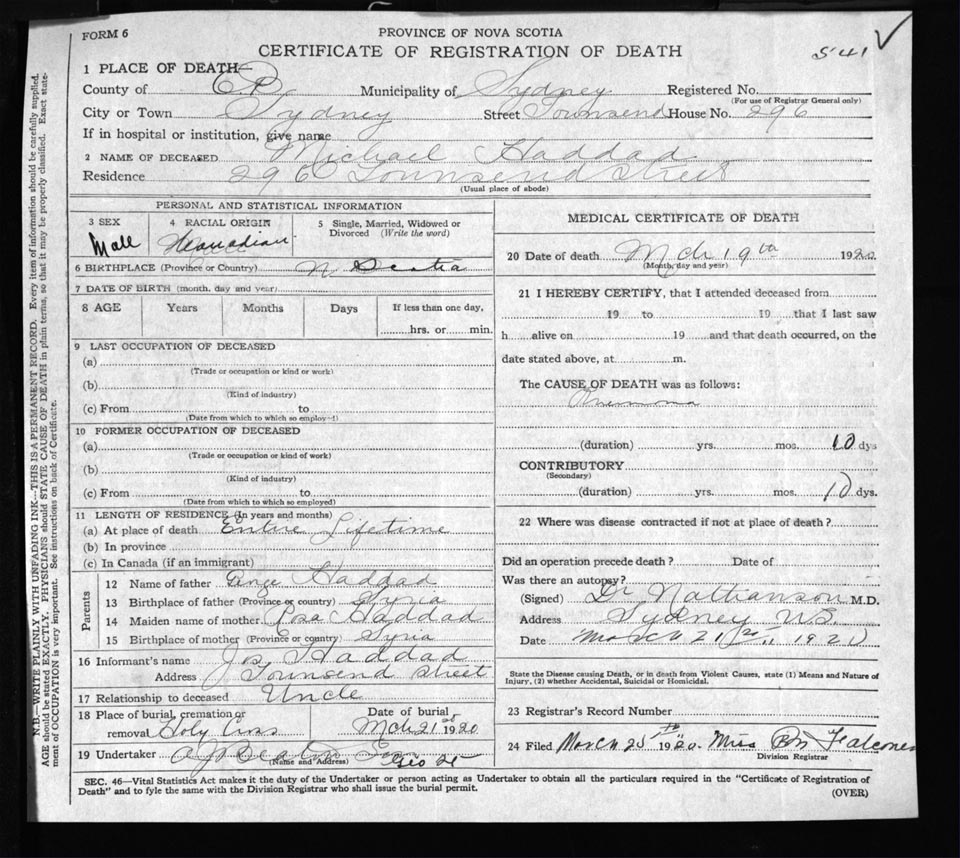 FORM 6
PROVINCE OF NOVA SCOTIA
CERTIFICATE OF REGISTRATION OF DEATH
541
1 PLACE OF DEATH—
County of C.B. Municipality of Sydney Registered No.
(For use of Registrar General only)
City or Town Sydney Street Townsend House No. 296
If in hospital or institution, give name
2 NAME OF DECEASED Michael Haddad
Residence 296 Townsend Street
(Usual place of abode)
PERSONAL AND STATISTICAL INFORMATION
3 SEX Male
4 RACIAL ORIGIN Canadian
5 Single, Married, Widowed or Divorced (Write the word)
6 BIRTHPLACE (Province or Country) N Scotia
7 DATE OF BIRTH (month, day and year)
8 AGE Years Months Days If less than one day,
hrs. or min.
9 LAST OCCUPATION OF DECEASED
(a)
(Trade or occupation or kind or work)
(b)
(Kind of industry)
(c) From to
(Date from which to which so employed)
10 FORMER OCCUPATION OF DECEASED
(a)
(Trade or occupation or kind of work)
(b)
(Kind of industry)
(c) From to
(Date from which to which so employed)
11 LENGTH OF RESIDENCE (In years and months)
(a) At place of death Entire Lifetime
(b) In province
(c) In Canada (if an immigrant)
Parents
12 Name of father Haddad
13 Birthplace of father (Province or country) Syria
14 Maiden name of mother Rosa Haddad
15 Birthplace of mother (Province or country) Syria
16 Informant's name Jos Haddad
Address Townsend Street
17 Relationship to deceased Uncle
18 Place of burial, cremation or removal Holy Cross
Date of burial Mch 21st 1920
19 Undertaker A J Beaton
(Name and Address)
MEDICAL CERTIFICATE OF DEATH
20 Date of death Mch 19th 1920
(Month, day and year)
21 I HEREBY CERTIFY, that I attended deceased from
19 to 19 that I last saw
h alive on 19 and that death occurred, on the
date stated above, at m.
The CAUSE OF DEATH was as follows:
(duration) yrs. mos. 10 dys
CONTRIBUTORY
(Secondary)
(duration) yrs. mos. 10 dys.
22 Where was disease contracted if not at place of death?
Did an operation precede death? Date of
Was there an autopsy?
(Signed) Dr Nathanson M.D.
Address Sydney N.S.
Date March 21st, 1920
State the Disease causing Death, or in death from Violent Causes, state (1) Means and Nature of
Injury, (2) whether Accidental, Suicidal or Homicidal.
23 Registrar's Record Number
24 Filed March 25th 1920 Miss Falconer
Division Registrar
SEC. 46—Vital Statistics Act makes it the duty of the Undertaker or person acting as Undertaker to obtain all the particulars required in the "Certificate of Registration of
Death" and to fyle the same with the Division Registrar who shall issue the burial permit.
(OVER)
N.B.—WRITE PLAINLY WITH UNFADING INK—THIS IS A PERMANENT RECORD. Every item of information should be carefully supplied.
AGE should be stated EXACTLY. PHYSICIANS should STATE CAUSE OF DEATH in plain terms, so that it may be properly classified. Exact statement of OCCUPATION is very important. See instructions on back of Certificate.